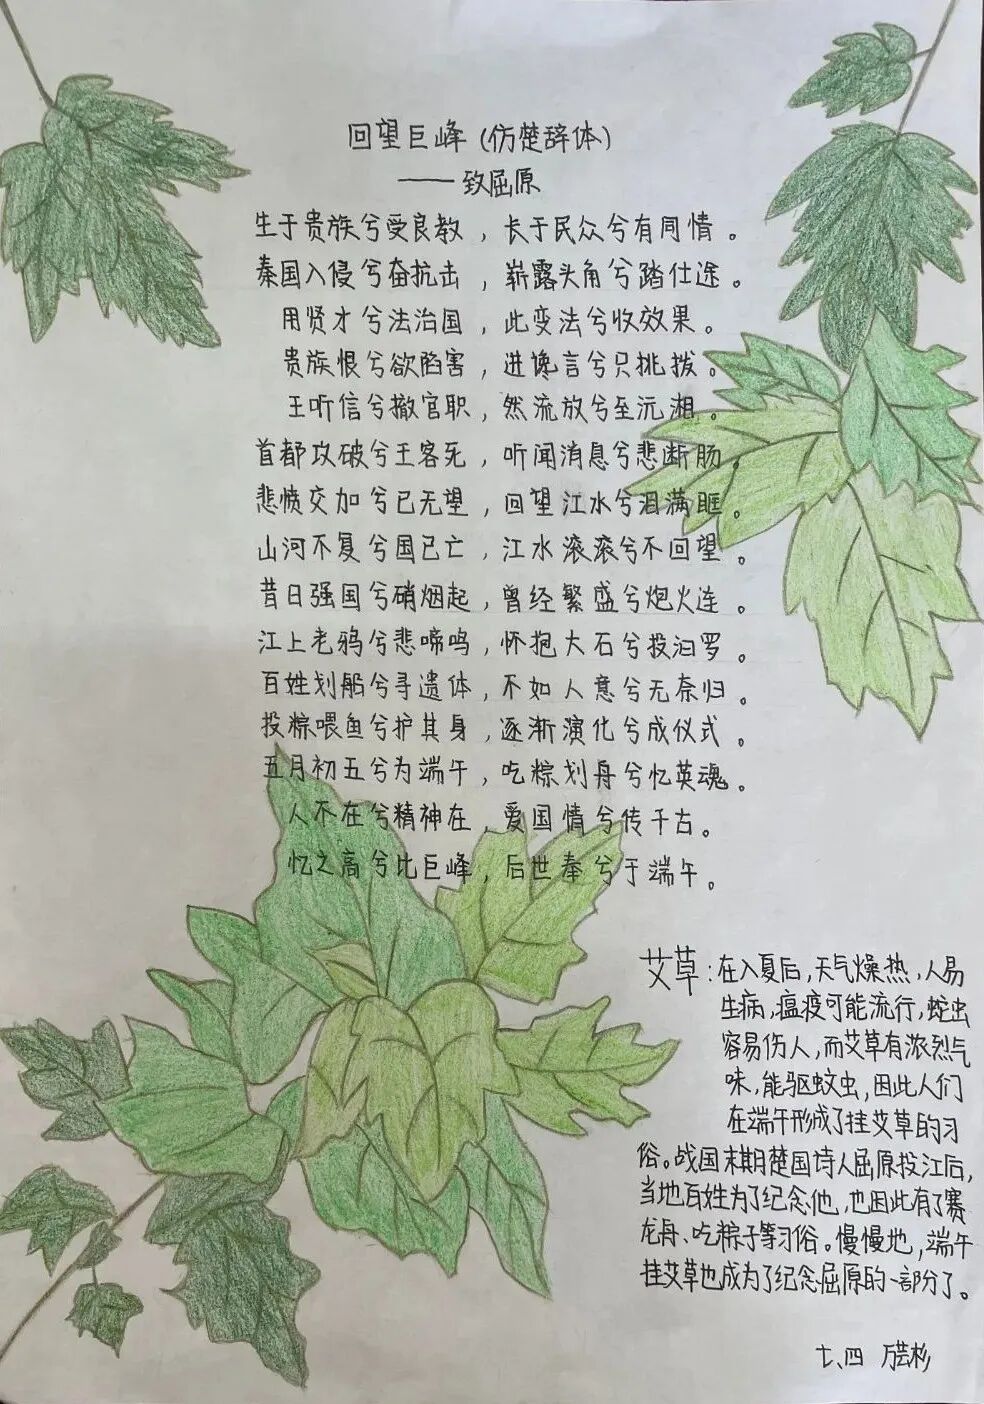 回望巨峰(仿楚辞体)
——致屈原
生于贵族兮受良教，长于民众兮有同情。
秦国入侵兮奋抗击，崭露头角兮踏仕途。
用贤才兮法治国，此变法兮收效果。
贵族恨兮欲陷害，进谗言兮只挑拨。
王听信兮撤官职，然流放兮至沅湘。
首都攻破兮王客死，听闻消息兮悲断肠。
悲愤交加兮已无望，回望江水兮泪满眶。
山河不复兮国已亡，江水滚滚兮不回望。
昔日强国兮硝烟起，曾经繁盛兮炮火连。
江上老鸦兮悲啼鸣，怀抱大石兮投汩罗。
百姓划船兮寻遗体，不如人意兮无奈归。
投粽喂鱼兮护其身，逐渐演化兮成仪式。
五月初五兮为端午，吃粽划舟兮忆英魂。
人不在兮精神在，爱国情兮传千古。
忆之高兮比巨峰，后世奉兮于端午。
艾草:在入夏后，天气燥热，人易
生病，瘟疫可能流行，蛇虫
容易伤人，而艾草有浓烈气
味，能驱蚊虫，因此人们
在端午形成了挂艾草的习
俗。战国末期楚国诗人屈原投江后，
当地百姓为了纪念他，也因此有了赛
龙舟、吃粽子等习俗。慢慢地，端午
挂艾草也成为了纪念屈原的一部分了。
七、四 万芸杉